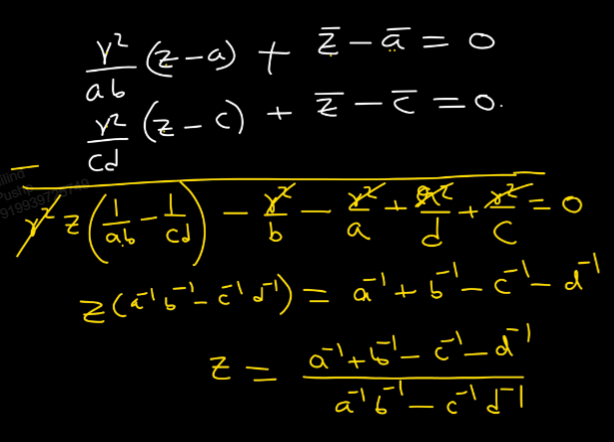 γ²/ab (z-a) + z̅ - a̅ = 0
γ²/cd (z-c) + z̅ - c̅ = 0.
γ² z (1/ab - 1/cd) - γ²/b - γ²/a + γ²/d + γ²/c = 0
z(a⁻¹b⁻¹ - c⁻¹d⁻¹) = a⁻¹ + b⁻¹ - c⁻¹ - d⁻¹
z = (a⁻¹ + b⁻¹ - c⁻¹ - d⁻¹)/(a⁻¹b⁻¹ - c⁻¹d⁻¹)